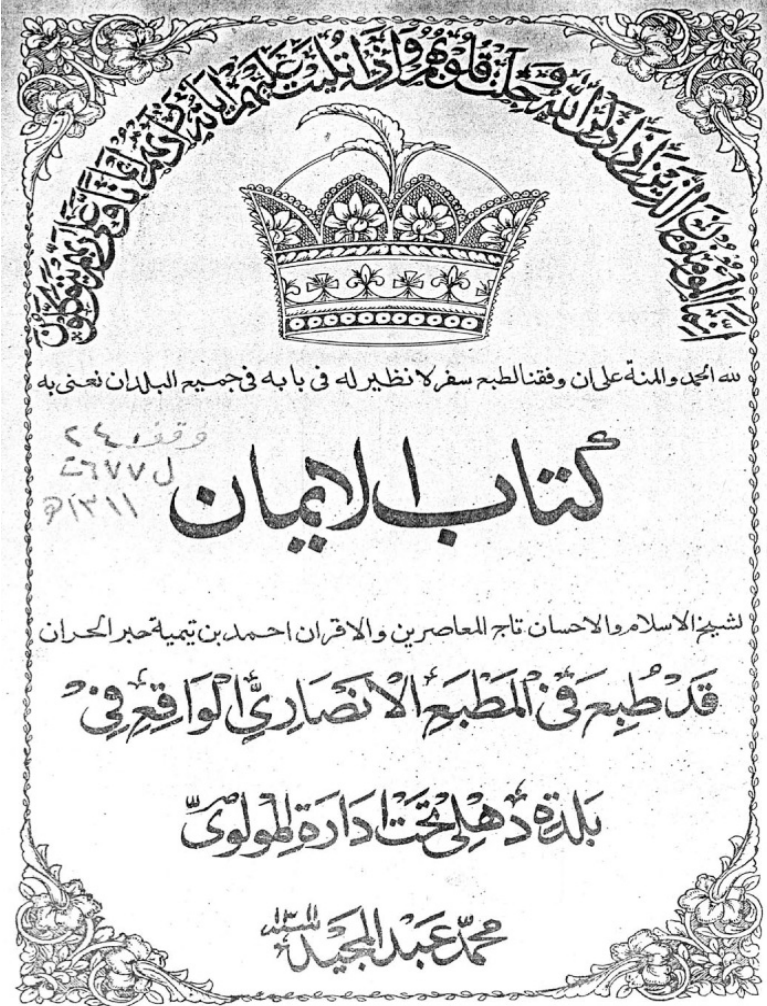 إنما المؤمنون الذين إذا ذكر الله وجلت قلوبهم وإذا تليت عليهم آياته زادتهم إيمانا وعلى ربهم يتوكلون
لله الحمد والمنة على ان وفقنا لطبع سفر لا نظير له في بابه في جميع البلدان نعني به
كتاب الايمان
لشيخ الاسلام والاحسان تاج المعاصرين والاقران احمد بن تيمية حبر الحران
قَد طُبِعَ فِي المَطْبَعِ الانْصَارِيِّ الوَاقِعِ فِي
بَلْدَةِ دَهْلِي تَحْتَ اِدَارَةِ المَولَوِيّ
محمّد عَبد المَجِيد
٢٤٠
١٣١١ھ